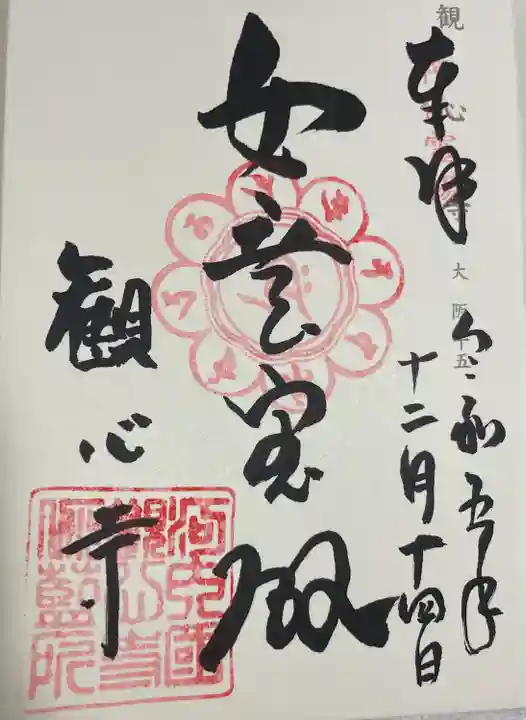 奉拝
令和五年
十二月十四日
如意宝
観心寺
観心寺
大阪十五
河内國
観心寺